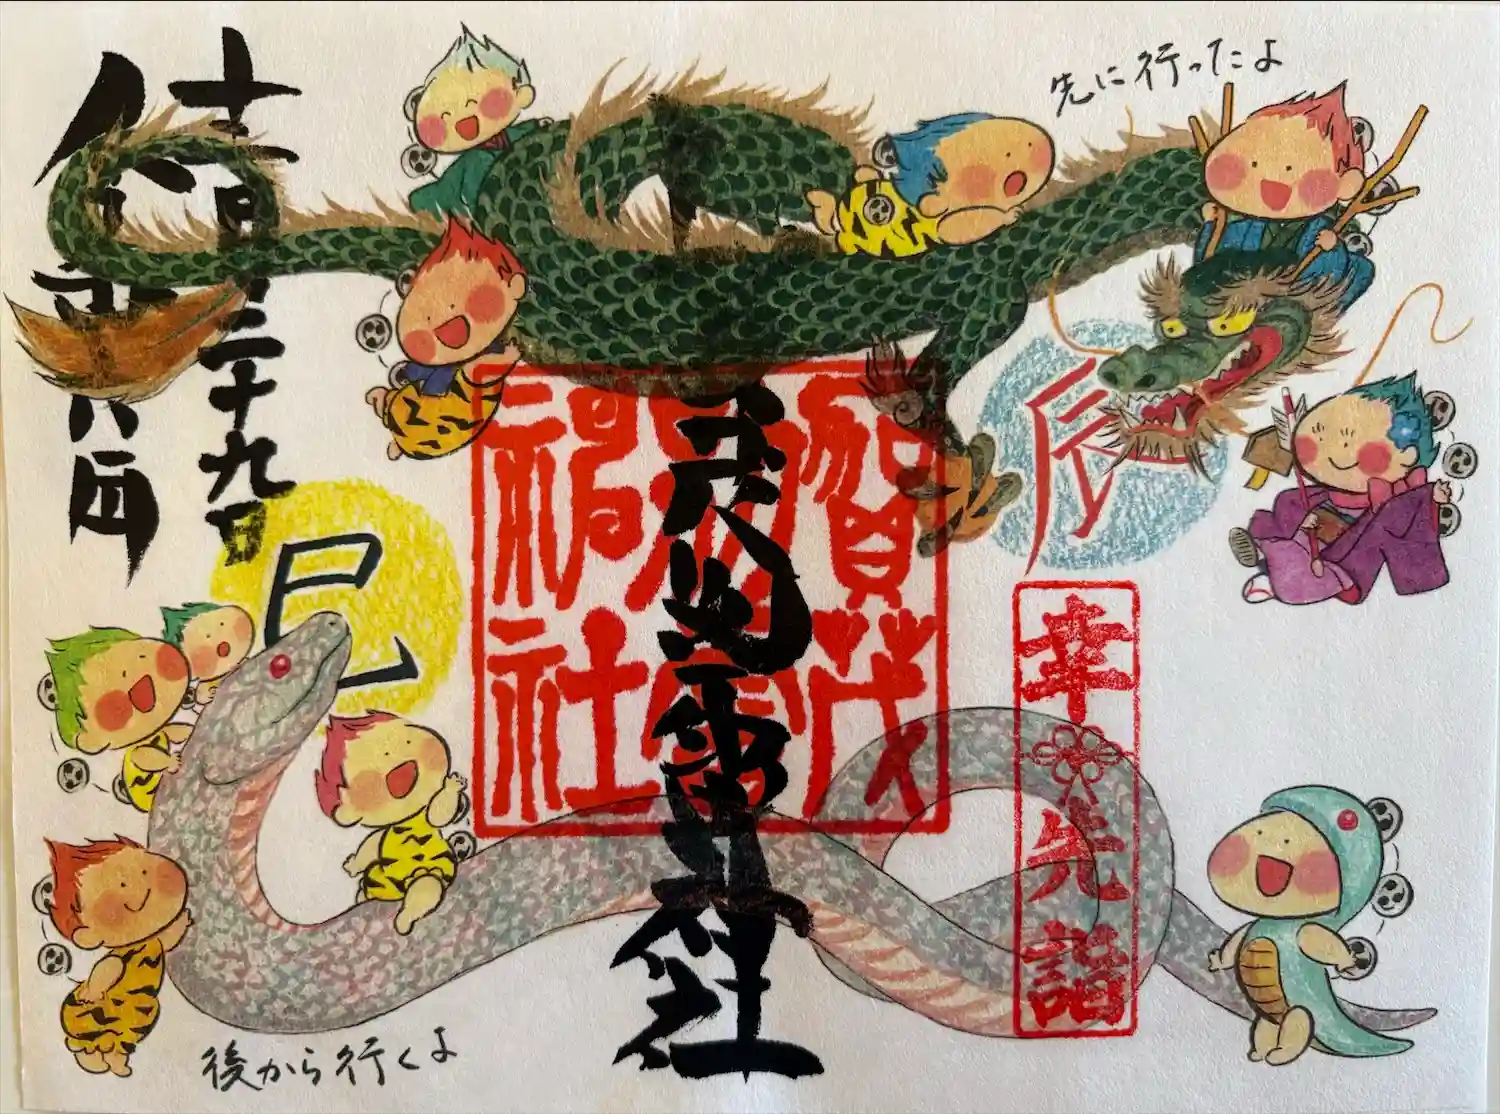 先に行ったよ
月二十九日
令和六年
辰
巳
賀茂
別雷
神社
賀茂別雷神社
幸先詣
後から行くよ